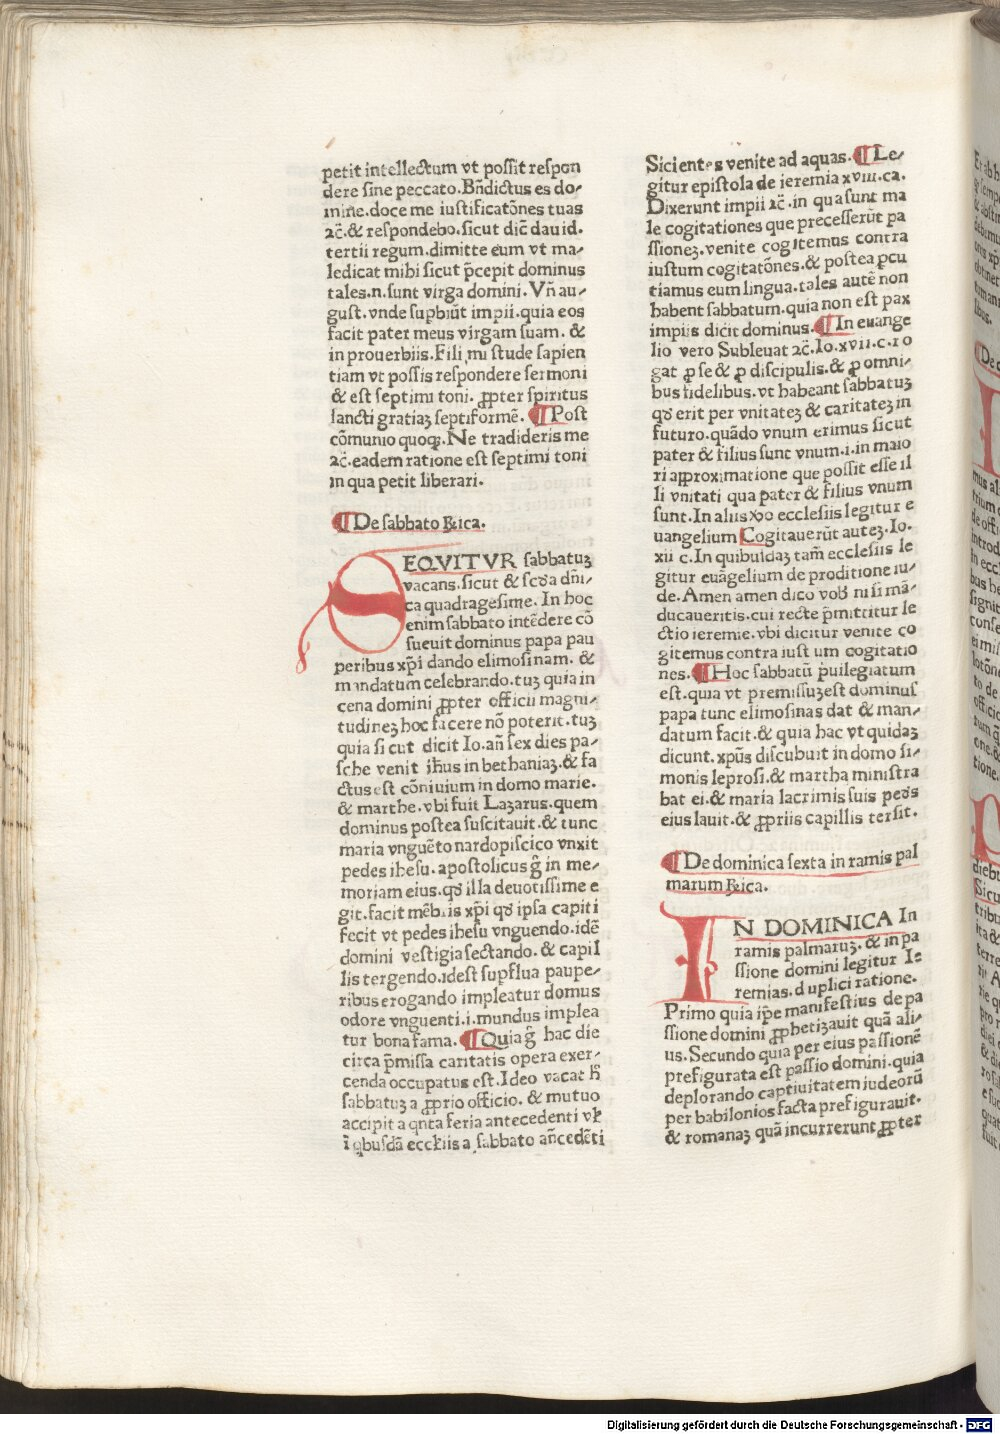 petit intellectum vt possit respon
dere sine peccato. Bn̄dictus es do-
mine. doce me iustificatōnes tuas
⁊c̄. & respondebo. sicut dic̄ dauid.
tertii regum. dimitte eum vt ma-
ledicat mihi sicut p̄cepit dominus
tales. n. sunt virga domini. Vn̄ au-
gust. vnde supbiūt impii. quia eos
facit pater meus virgam suam. &
in prouerbiis. Fili mi stude sapien
tiam vt possis respondere sermoni
& est septimi toni. ꝓpter spiritus
sancti gratiaꝫ septiformē. ¶ Post
cōmunio quoqꝫ. Ne tradideris me
⁊c̄. eadem ratione est septimi toni
in qua petit liberari.
¶ De sabbato Rֿica.
SEQVITVR sabbatuꝫ
vacans. sicut & scd̄a dn̄i-
ca quadragesime. In hoc
enim sabbato intēdere cō
sueuit dominus papa pau
peribus xp̄i dando elimosinam. &
mandatum celebrando. tuꝫ quia in
cena domini ꝓpter officii magni-
tudineꝫ hoc facere nō poterit. tuꝫ
quia sicut dicit Io. an̄ sex dies pa-
sche venit ih̄us in bethaniaꝫ. & fa
ctus est cōniuium in domo marie.
& marthe. vbi fuit Lazarus. quem
dominus postea suscitauit. & tunc
maria vnguēto nardopiscico vnxit
pedes ihesu. apostolicus g̃ in me-
moriam eius. qd̄ illa deuotissime e
git. facit mēbris xp̄i qd̄ ipsa capiti
fecit vt pedes ihesu vnguendo. idē
domini vestigia sectando. & capil
lis tergendo. idest supflua paupe-
ribus erogando impleatur domus
odore vnguenti. i. mundus implea
tur bona fama. ¶ Quia g̃ hac die
circa p̄missa caritatis opera exer-
cenda occupatus est. Ideo vacat h̄
sabbatuꝫ a ꝓprio officio. & mutuo
accipit a qnta feria antecedenti vl̄
ī qbusdā eccl̄iis a sabbato an̄cedēti
Sicientes venite ad aquas. ¶ Le-
gitur epistola de ieremia xviii. ca.
Dixerunt impii ⁊c̄. in qua sunt ma
le cogitationes que precesserūt pa
ssioneꝫ. venite cogitemus contra
iustum cogitatōnes. & postea pcu
tiamus eum lingua. tales autē non
habent sabbatum. quia non est pax
impiis dicit dominus. ¶ In euange
lio vero Subleuat ⁊c̄. Io. xvii. c. ro
gat ꝓ se & ꝓ discipulis. & ꝓ omni-
bus fidelibus. vt habeant sabbatuꝫ
qd̄ erit per vnitateꝫ & caritateꝫ in
futuro. quādo vnum erimus sicut
pater & filius sunt vnum. i. in maio
ri approximatione que possit esse il
li vnitati qua pater & filius vnum
sunt. In aliis v̄o ecclesiis legitur e
uangelium Cogitauerūt auteꝫ. Io.
xii c. In quibusdaꝫ tam̄ ecclesiis le
gitur euāgelium de proditione iu-
de. Amen amen dico vob̄ nisi mā-
ducaueritis. cui recte p̄mittitur le
ctio ieremie. vbi dicitur venite co
gitemus contra iustum cogitatio
nes. ¶ Hoc sabbatū p̄uilegiatum
est. quia vt premissuꝫ est dominus
papa tunc elimosinas dat & man-
datum facit. & quia hac vt quidaꝫ
dicunt. xp̄us discubuit in domo si-
monis leprosi. & martha ministra
bat ei. & maria lacrimis suis ped̄s
eius lauit. & ꝓpriis capillis tersit.
¶ De dominica sexta in ramis pal
marum Rֿica.
IN DOMINICA In
ramis palmaruꝫ. & in pa
ssione domini legitur Ie
remias. duplici ratione.
Primo quia ip̄e manifestius de pa
ssione domini ꝓphetiꝫauit quā ali-
us. Secundo quia per eius passionē
prefigurata est passio domini. quia
deplorando captiuitatem iudeorū
per babilonios facta prefigurauit.
& romanaꝫ quā incurrerunt ꝓpter
Digitalisierung gefördert durch die Deutsche Forschungsgemeinschaft - DFG